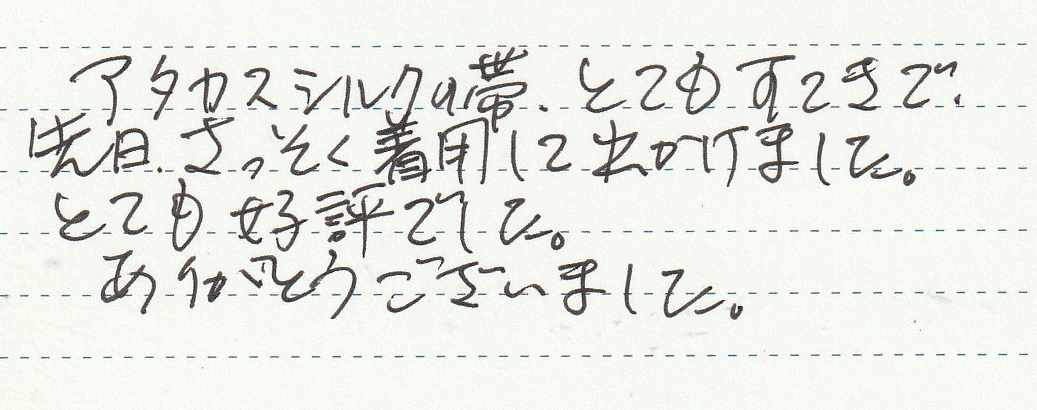 アタカスシルクの帯、とてもすてきで、
先日、さっそく着用して出かけました。
とても好評でした。
ありがとうございました。